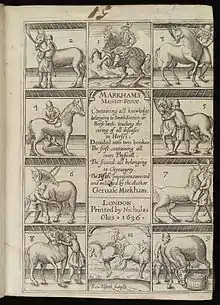 MARKHAM'S
Maister-Peece
Containing all knowledge
belonging to Smith, Farrier, or
Horse-leech, touching the
curing of all diseases
in Horses.
Devided into two bookes
The first containing all
cures Physicall
The second all belonging
to Chyrurgery
The
Impression
and
by the Author
Gervase Markham.
LONDON
Printed by Nicholas
Okes 1636
2
4
6
7
8
10